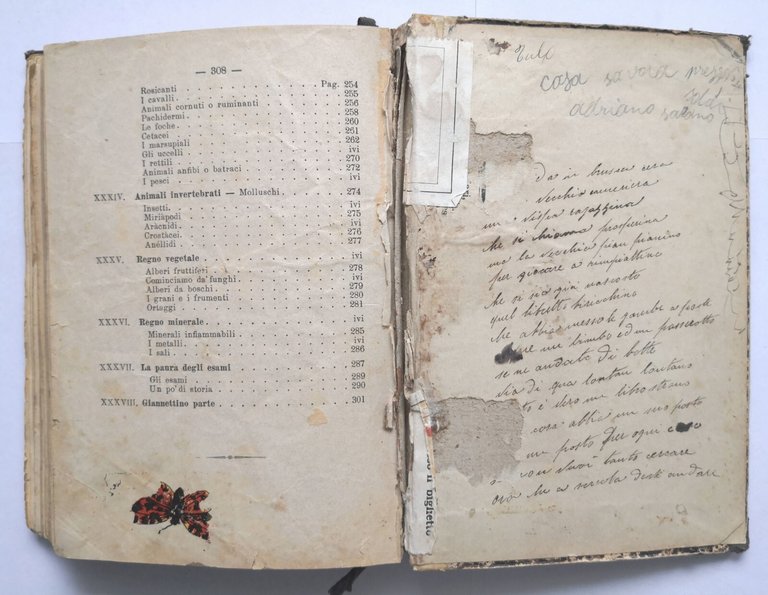 — 308 —
Rosicanti Pag. 254
I cavalli. 255
Animali cornuti o ruminanti 256
Pachidermi 258
Le foche. 260
Cetacei 261
I marsupiali ivi
Gli uccelli ivi
I rettili 270
Animali anfibi o batraci 272
I pesci ivi
XXXIV. Animali invertebrati — Molluschi 274
Insetti. ivi
Miriàpodi 275
Aràcnidi ivi
Crostacei 276
Anèllidi 277
XXXV. Regno vegetale ivi
Alberi fruttiferi 278
Cominciamo da' funghi ivi
Alberi da boschi 279
I grani e i frumenti 280
Ortaggi 281
XXXVI. Regno minerale ivi
Minerali infiammabili 285
I metalli ivi
I sali 286
XXXVII. La paura degli esami 287
Gli esami 289
Un po' di storia 290
XXXVIII. Giannettino parte 301
casa savoia
adriano
vecchia
che si chiama prosperina
ma la vecchia pian pianino
per giocare a rimpiattino
che si sia già nascosto
quel libretto birichino
che abbia messo le gambe
un bimbo ed un passerotto
se ne andato di botto
via di qua lontan lontano
è vero un libro strano
cosa abbia un suo posto
un posto per ogni cosa
non vuoi tanto cercare
ora che a scuola devi andare
il biglietto